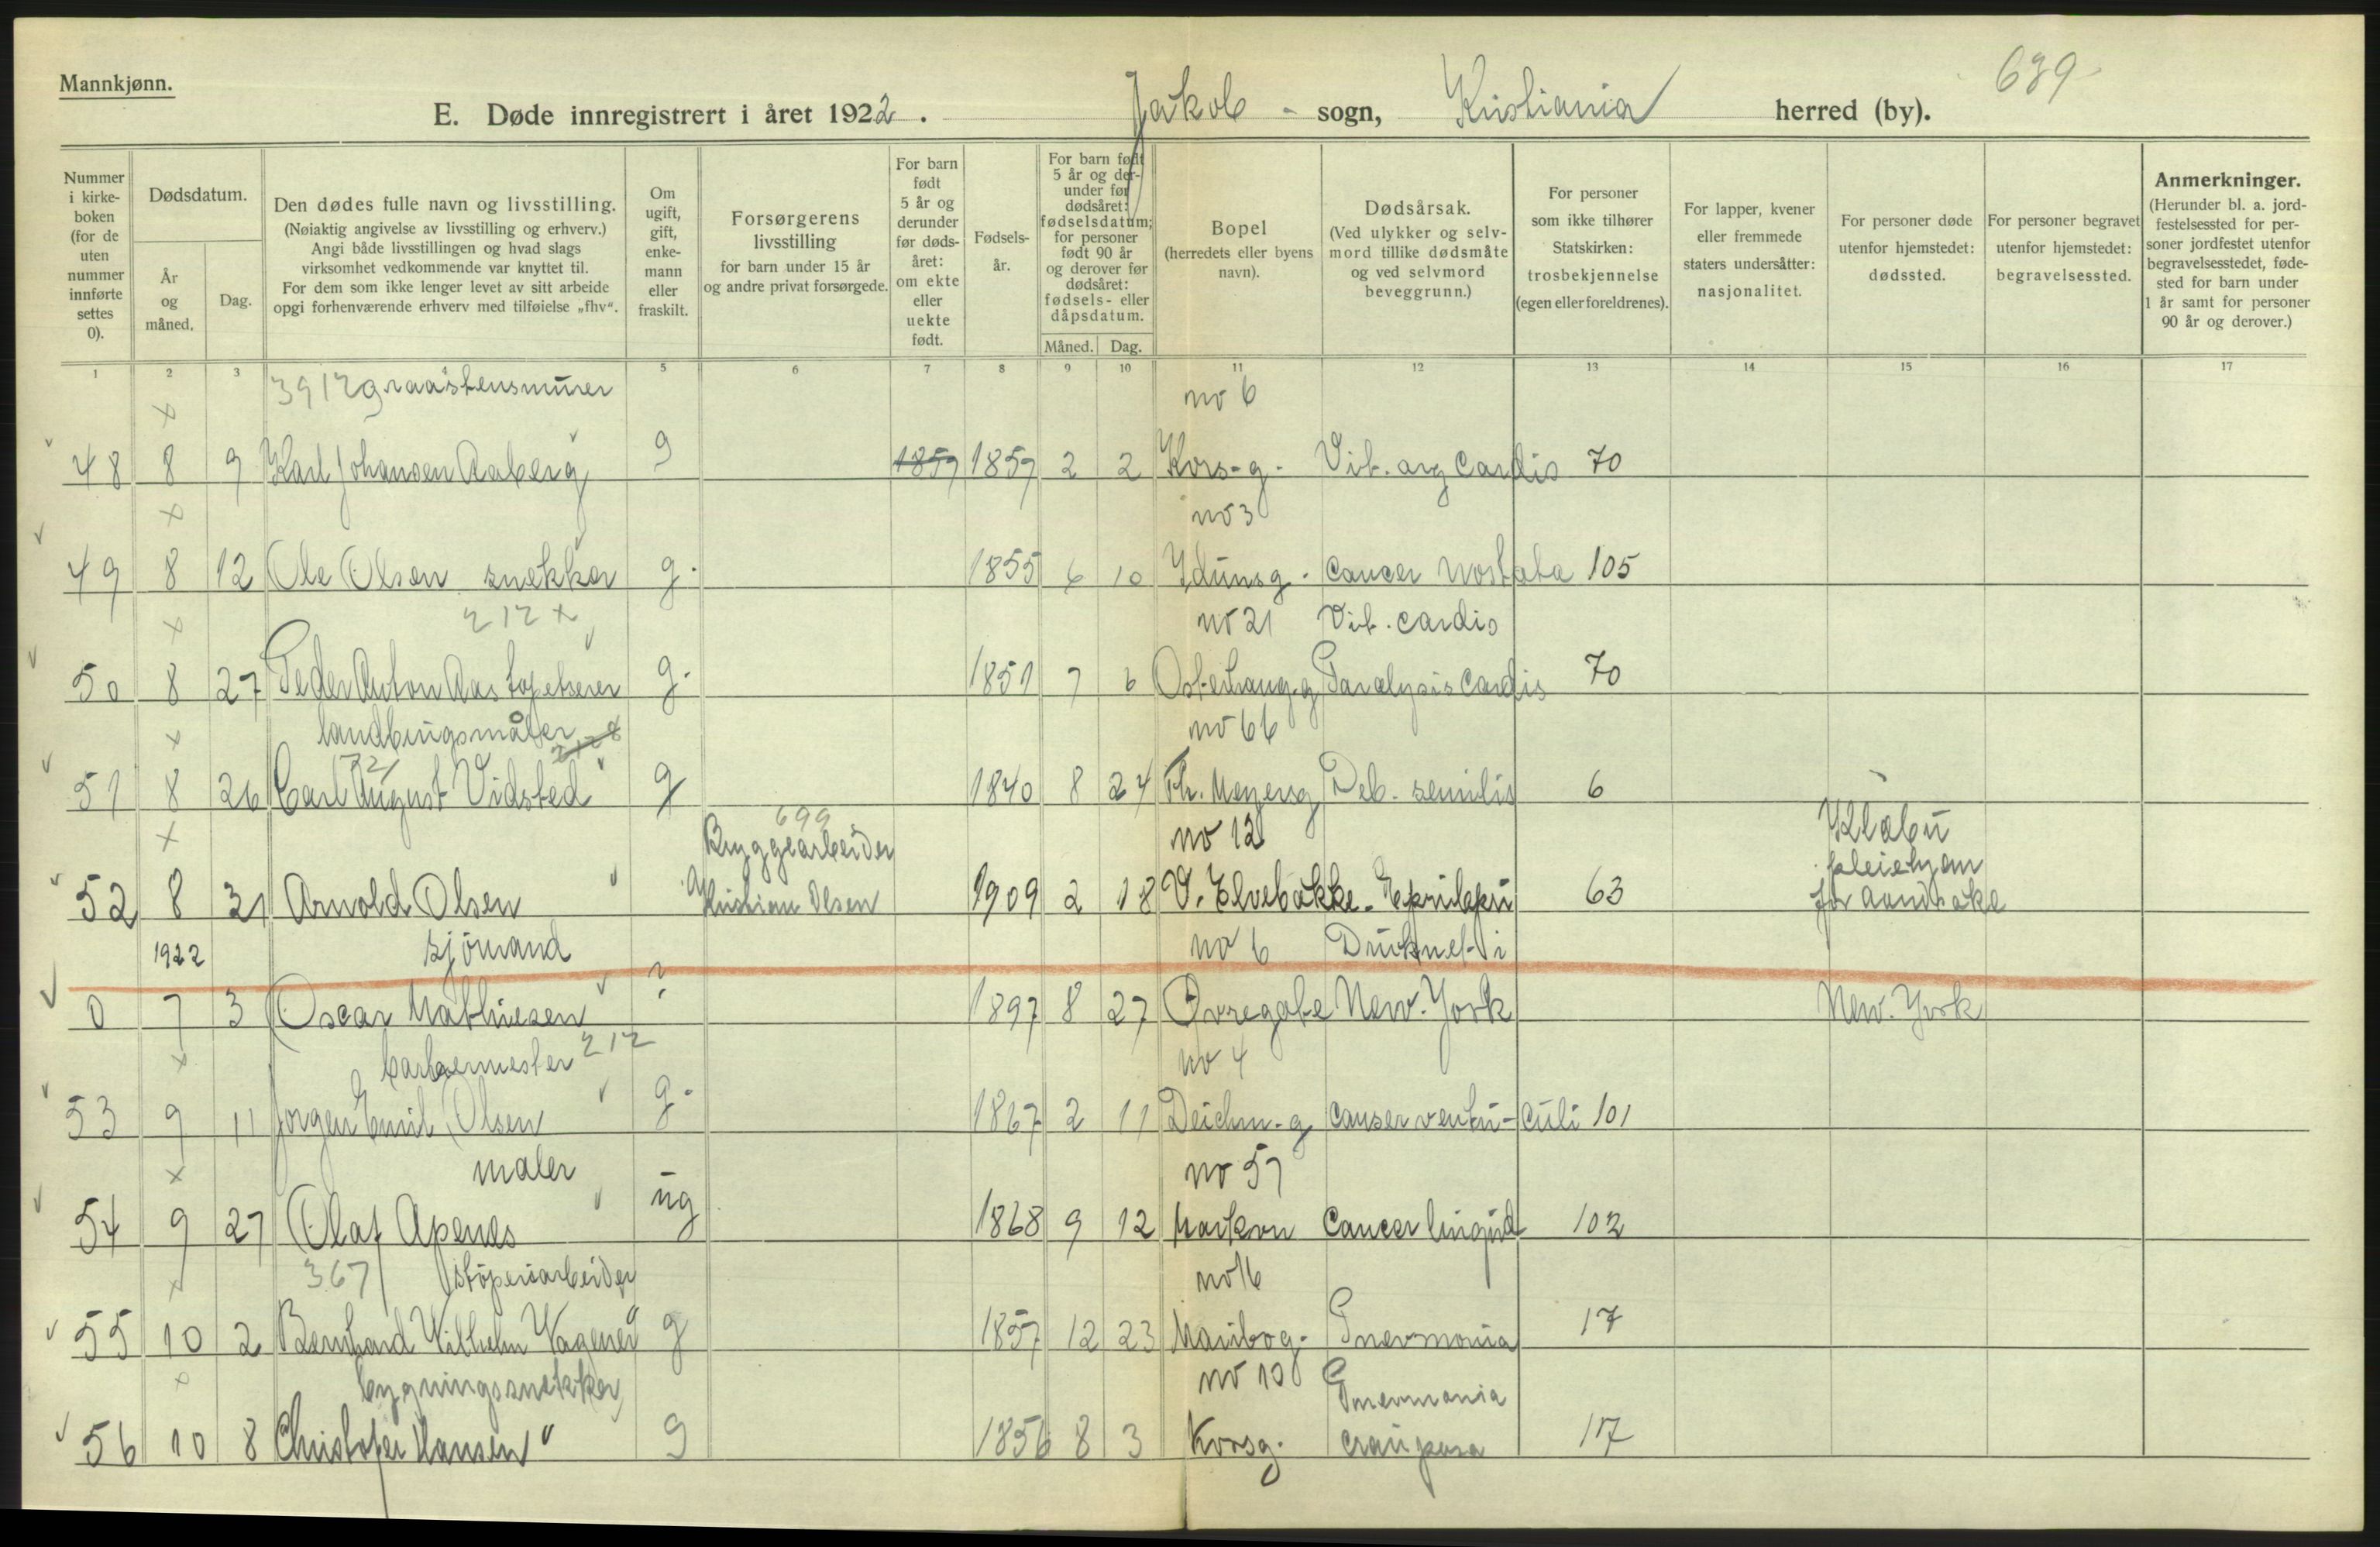 Mannkjønn.
639
E. Døde innregistrert i året 1922. Jakob - sogn, Kristiania herred (by).
Nummer i kirke-boken (for de uten nummer innførte settes 0).
Dødsdatum.
År og måned.
Dag.
Den dødes fulle navn og livsstilling.
(Nøiaktig angivelse av livsstilling og erhverv.)
Angi både livsstillingen og hvad slags
virksomhet vedkommende var knyttet til.
For dem som ikke lenger levet av sitt arbeide
opgi forhenværende erhverv med tilføielse „fhv“.
Om ugift, gift, enke-mann eller fraskilt.
Forsørgerens livsstilling
for barn under 15 år
og andre privat forsørgede.
For barn født 5 år og derunder før døds-året: om ekte eller uekte født.
Fødsels-år.
For barn født 5 år og der-under før dødsåret: fødselsdatum; for personer født 90 år og derover før dødsåret: fødsels- eller dåpsdatum.
Måned. Dag.
Bopel
(herredets eller byens navn).
Dødsårsak.
(Ved ulykker og selv-mord tillike dødsmåte og ved selvmord beveggrunn.)
For personer som ikke tilhører Statskirken: trosbekjennelse (egen eller foreldrenes).
For lapper, kvener eller fremmede staters undersåtter: nasjonalitet.
For personer døde utenfor hjemstedet: dødssted.
For personer begravet utenfor hjemstedet: begravelsessted.
Anmerkninger.
(Herunder bl. a. jord-festelsessted for per-soner jordfestet utenfor begravelsesstedet, føde-sted for barn under 1 år samt for personer 90 år og derover.)
1 2 3 5 6 7 8 9 10 11 12 13 14 15 16 17
3912 graastensmurer no 6
x
48 8 9 Karl Johansen Aaberg g 1859 1859 2 2 Kors-g. Vit. org Cardis 70
x no 3
49 8 12 Ole Olsen snekker g. 1855 6 10 Idunsg. Cancer prostata 105
x 212 x no 21 Vit. cardis
50 8 27 Peder Anton Aas tapetserer g. 1851 7 6 Osterhausg. Paralysis Cardis 70
x no 66
51 8 26 Carl August Vidsted g 1840 8 24 Th. Meyersg Deb. senilis 6
x 699 Bryggearbeider no 12 Klæbu
pleiehjem
52 8 31 Arnold Olsen Kristian Olsen 1909 2 18 V. Elvebakke. 63 for aandsvake
1922 sjömand no 6 Druknet i
0 7 3 Oscar Mathiesen ? 1897 8 27 Øvregate New-York New-York
x barbermester 212 no 4
53 9 11 Jörgen Emil Olsen g. 1867 2 11 Deichm-g Canser ventri-culi 101
x maler no 57
54 9 27 Olaf Apenes ug 1868 9 12 Markvn Cancer 102
x 367 stöperiarbeider no 16
55 10 2 Bernhard Vilhelm Wagener g 1857 12 23 Maribog. Pnevmonia 17
x bygningssnekker no 10 Pnevmonia
56 10 8 Christofer Hansen g 1856 8 3 Korsg. croupøsa 17